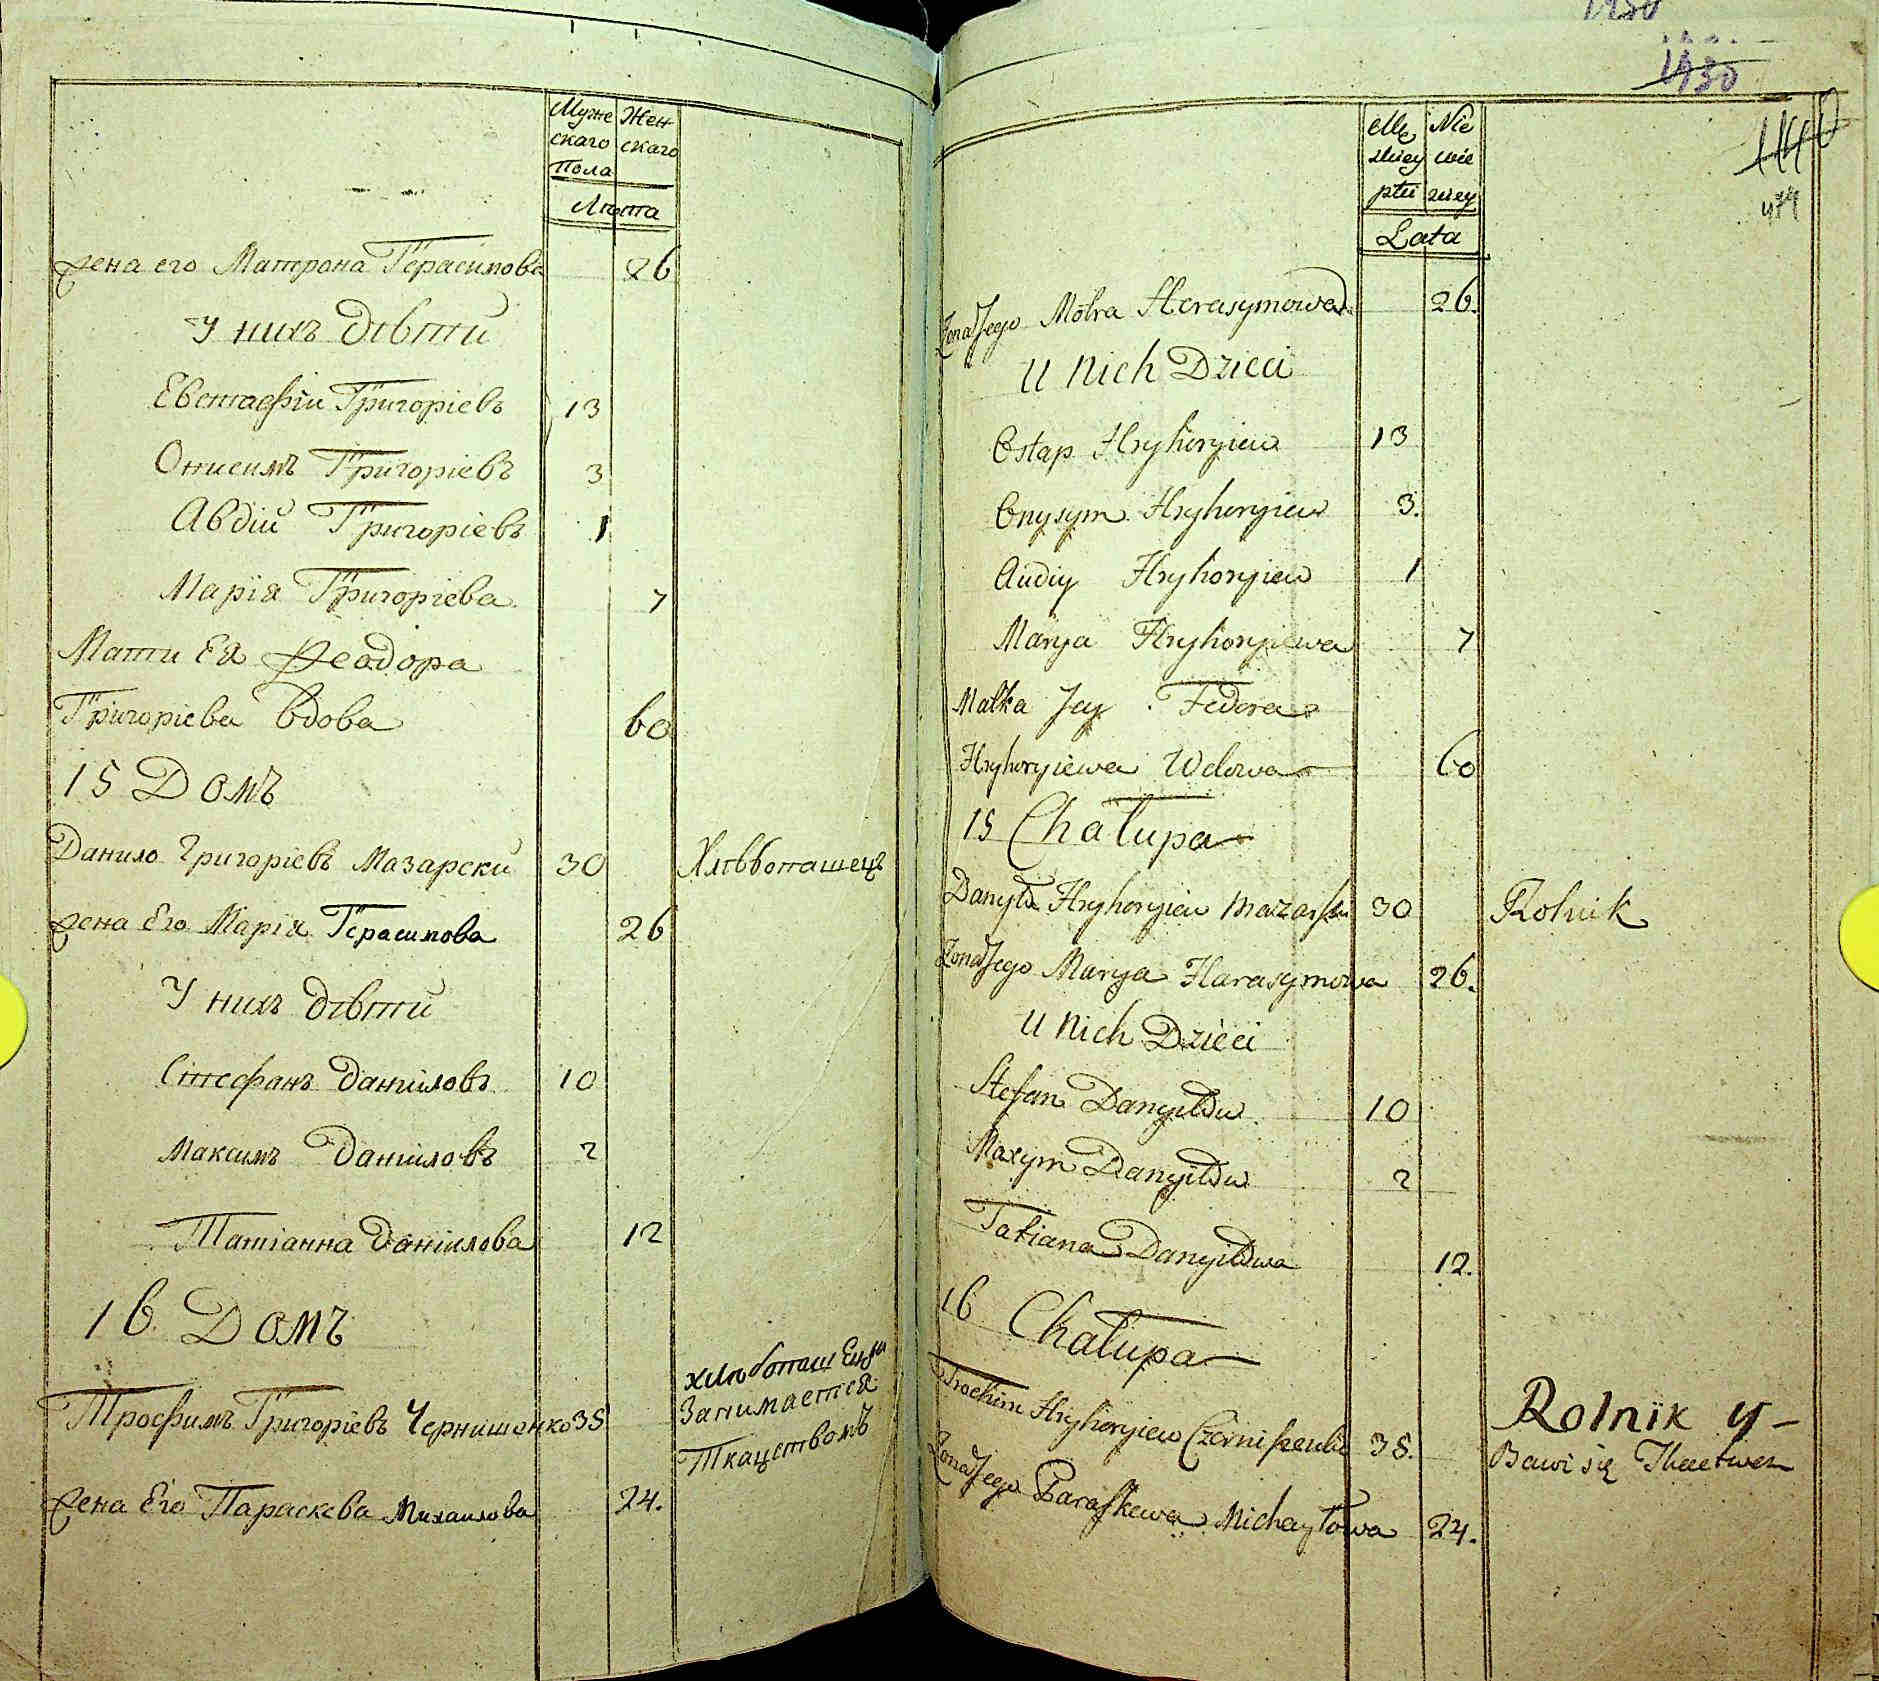 Муже
скаго
Пола
Жен
скаго
Лѣта
жена его Матрона Герасимова 26
У нихъ дѣти
Евстафiи Григорiевъ 13
Онисимъ Григорiевъ 3
Авдiй Григорiевъ 1
Марiя Григорiева 7
Мати Ея Феодора
Григорiева вдова 60
15 Домъ
Данило Григорiевъ Мазарски 30 Хлѣбопашецъ
жена Его Марiя Герасимова 26
У нихъ дѣти
Стефанъ Данiиловъ 10
Максимъ Данiиловъ 2
Татiанна Данiилова 12
16 Домъ
Трофимъ Григорiевъ Чернишенко 35 хлѣбопашецъ и
Занимается
Ткацствомъ
жена Его Параскева Михаилова 24.
1930
1930
140
474
Mę
zkiey
płci
Nie
wie
zciey
Lata
Zona Jego Motra Herasymowa 26.
U Nich Dzieci
Ostap Hryhoryiew 13
Onysym Hryhoryiew 3.
Audiy Hryhoryiew 1
Marya Hryhoryiewa 7
Matka Jey Fedora
Hryhoryiewa Wdowa 60
15 Chałupa
Danyło Hryhoryiew Mazarski 30 Rolnik
Zona Jego Marya Harasymowa 26.
U Nich Dzieci
Stefan Danyiłow 10
Maxym Danyiłow 2
Tatiana Danyiłowa 12.
16 Chałupa
Trochim Hryhoryiew Czerniszenko 35. Rolnik y-
Bawi się Tkactwem
Zona Jego Paraskewa Michayłowa 24.